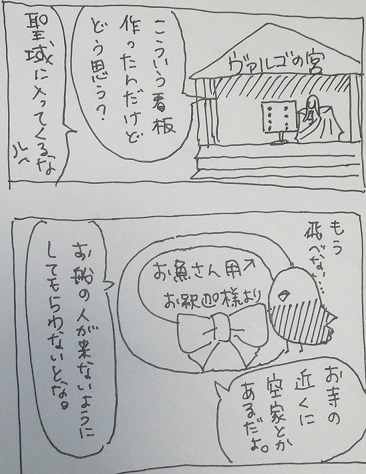 ヴァルゴの宮
こういう看板
作ったんだけど
どう思う?
聖域に入ってくるな
もう
飛べない……
お魚さん用↗
お釈迦様より
お寺の
近くに
空家とか
あるだよ。
お船の人が来ないように
してもらわないとな。